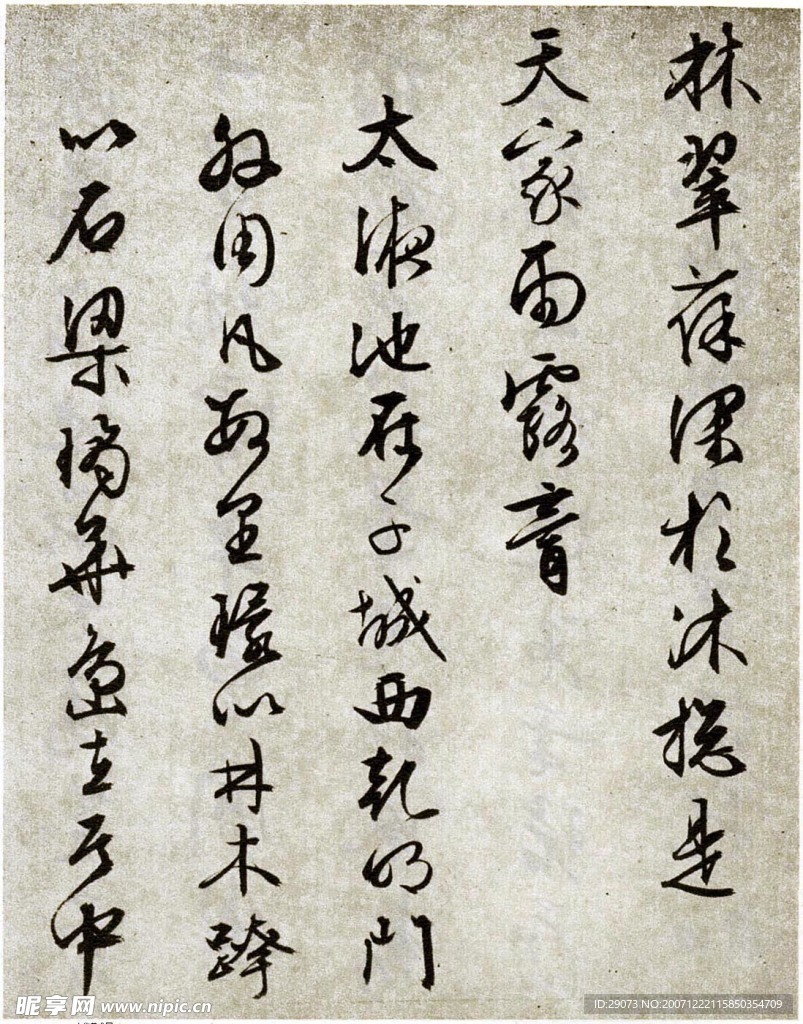 林翠葆深於沐揔是
天家雨露膏
太液池在子城西乾明門
外周凡數里環以林木跨
以石梁瓊華島在其中
昵享网 www.nipic.cn
ID:29073 NO:20071222115850354709